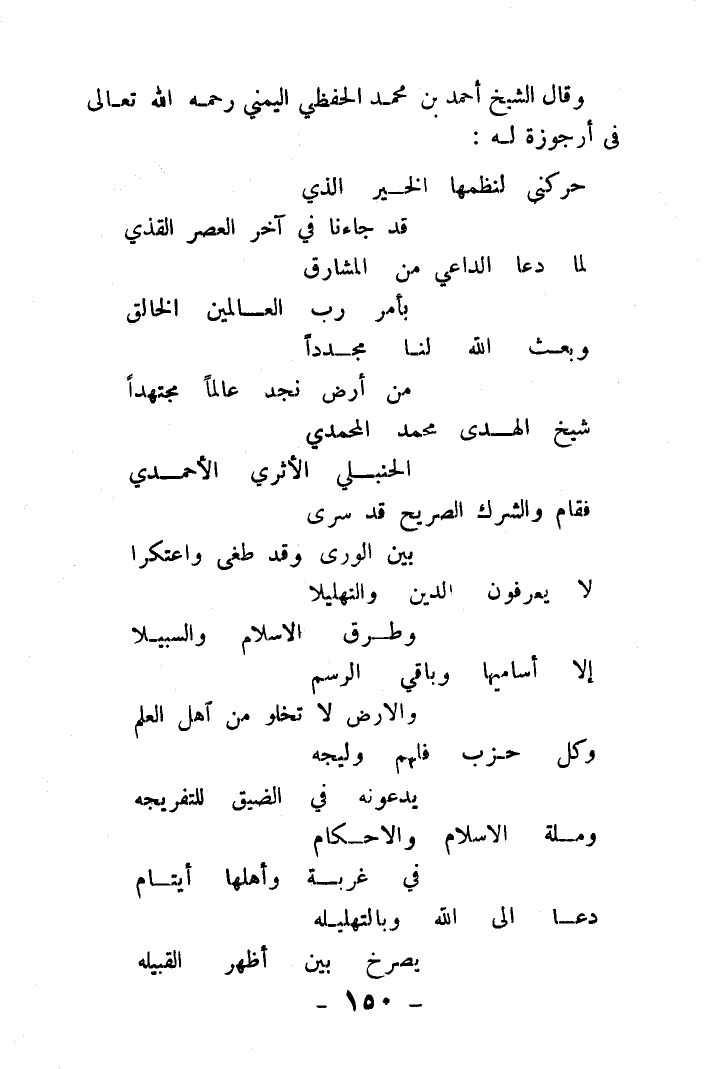 وقال الشيخ أحمد بن محمد الحفظي اليمني رحمه الله تعالى
فى أرجوزة له :
حركني لنظمها الخير الذي
قد جاءنا في آخر العصر القذي
لما دعا الداعي من المشارق
بأمر رب العالمين الخالق
وبعث الله لنا مجدداً
من أرض نجد عالماً مجتهداً
شيخ الهدى محمد المحمدي
الحنبلي الأثري الأحمدي
فقام والشرك الصريح قد سرى
بين الورى وقد طغى واعتكرا
لا يعرفون الدين والتهليلا
وطرق الاسلام والسبيلا
إلا أساميها وباقي الرسم
والارض لا تخلو من آهل العلم
وكل حزب فلهم وليجه
يدعونه في الضيق للتفريجه
وملة الاسلام والاحكام
في غربة وأهلها أيتام
دعا الى الله وبالتهليله
يصرخ بين أظهر القبيله
- ١٥٠ -